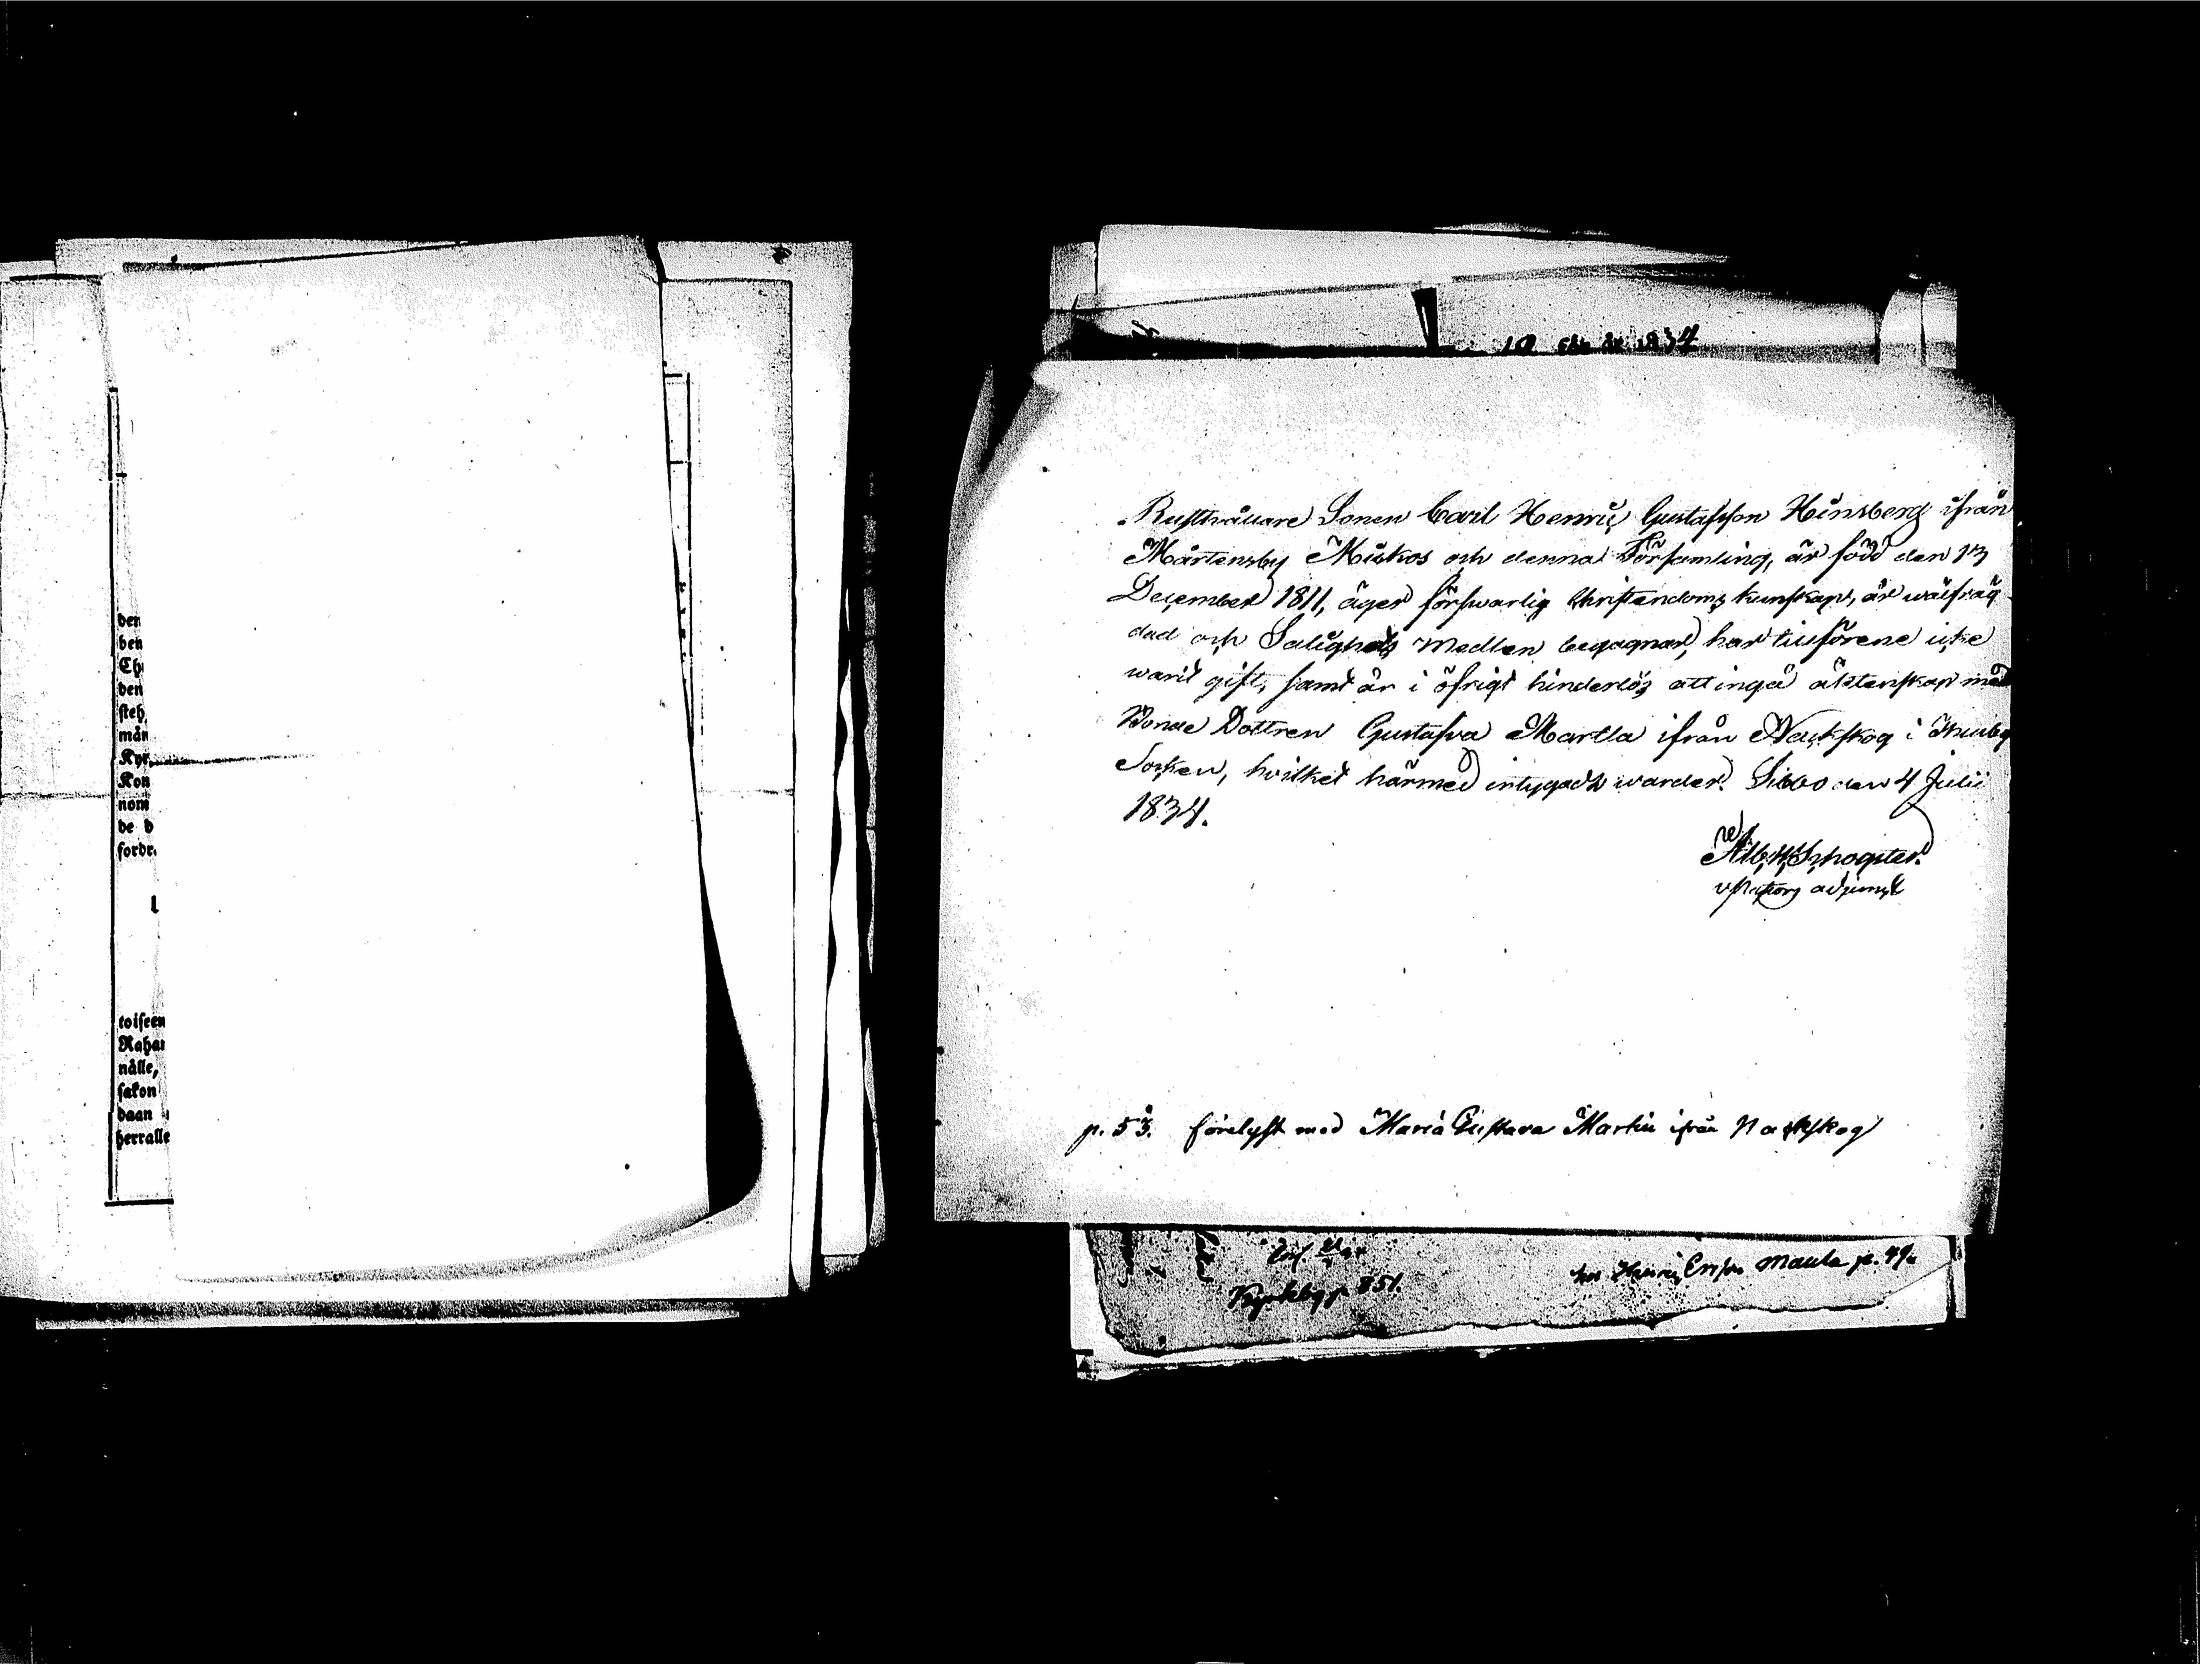 den
ben
Ch
den
steh
mån
Kyr
Kon
nom
de d
fordr.
toiseen
Raha
nälle,
sakon
daan
herralle
1834
Rusthållare Sonen Carl Henric Gustafsson Hinsberg ifrån
Mårtensby Miskos och denna Församling, är född den 13
December 1811, äger försvarlig Christendoms kunskap, är wälfräg
dad och Salighets Medlen begagnar, har tillförene icke
warit gift, samt är i öfrigt hinderlös att ingå äktenskap med
Bonde Dottren Gustafva Martla ifrån Nackskog i Thusby
Socken, hvilket härmed intygadt warder. Sibbo den 4 Julii
1834.
adjunct
p. 53. förelyst med Maria Gustava Martin ifrån Nackskog
p. 851.
hos Henric Maula p. 49